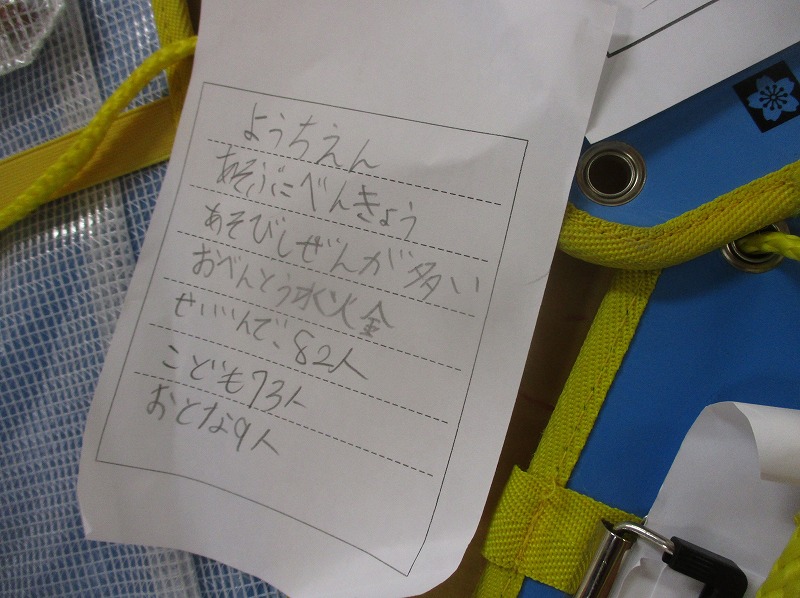 ようちえん
あそぶにべんきょう
あそびしぜんが多い
おべんとう水火金
せいいんで、82人
こども73人
おとな9人